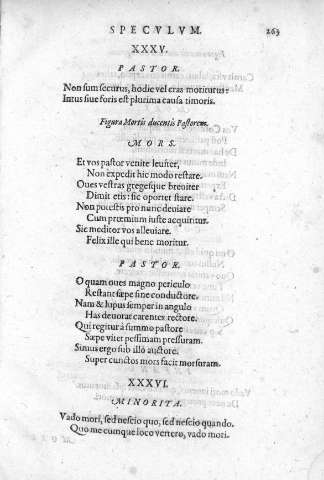 SPECVLVM. 263
XXXV.
PASTOR.
Non sum securus, hodie vel cras moriturus:
Intus siue foris est plurima causa timoris.
Figura Mortis ducentis Pastorem.
MORS.
Et vos pastor venite leuiter,
Non expedit hic modo restare.
Oues vestras gregesque breuiter
Dimittetis: sic oportet stare.
Non potestis pro nunc deuiare
Cum præmium iuste acquiritur.
Sic meditor vos alleuiare.
Felix ille qui bene moritur.
PASTOR.
O quam oues magno periculo
Restant sæpe sine conductore.
Nam & lupus semper in angulo
Has deuorat carentes rectore.
Qui regitur à summo pastore
Sæpe vitet pessimam pressuram.
Simus ergo sub illo auctore.
Super cunctos mors facit morsuram.
XXXVI.
MINORITA.
Vado mori, sed nescio quo, sed nescio quando.
Quo me cumque loco vertero, vado mori.